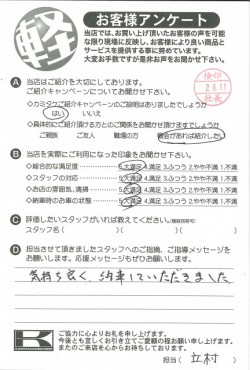 軽
お客様アンケート
当店では、お買い上げ頂いたお客様の声を可能
な限り現場に反映し、お客様により良い商品と
サービスを提供する事に努めています。
大変お手数ですが是非お声をお聞かせ下さい。
検印
2.6.11
社長
A 当店はご紹介を大切にしております。
ご紹介キャンペーンについてお聞かせ下さい。
◇カミタケご紹介キャンペーンのご説明はありましたでしょうか
はい いいえ
◇具体的にご紹介頂ける方とのご関係をお聞かせ頂けますでしょうか
ご親族 ご友人 職場の方 機会があれば紹介したい
B 当店を実際にご利用になった印象をお聞かせ下さい。
◇総合的な満足度 5.大満足 4.満足 3.ふつう 2.やや不満 1.不満
◇スタッフの対応 5.大満足 4.満足 3.ふつう 2.やや不満 1.不満
◇お店の雰囲気、清掃 5.大満足 4.満足 3.ふつう 2.やや不満 1.不満
◇納車時のお車の状態 5.大満足 4.満足 3.ふつう 2.やや不満 1.不満
C 評価したいスタッフがいれば教えてください。(複数回答可)
スタッフ名( )( )( )
D 担当させて頂きましたスタッフへのご指摘、ご指導メッセージを
お願いします。応援メッセージもぜひお願いします。
気持ち良く、納車していただきました
K
ご協力に心よりお礼を申し上げます。
今後とも宜しくお引き立てご愛顧の程お願い申し上げます。
またのご来店を心からお待ちしております。
担当(立村)